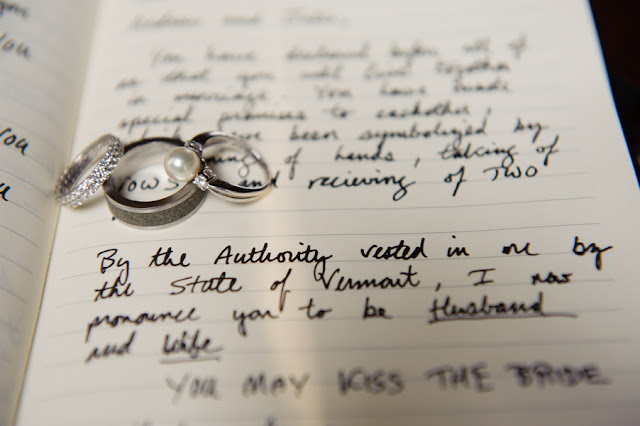 You have declared before all of
us that you will live together
in marriage. You have made
special promises to eachother,
which have been symbolized by
the joining of hands, taking of
vows and recieving of TWO
By the Authority vested in me by
the State of Vermont, I now
pronounce you to be Husband
and Wife
YOU MAY KISS THE BRIDE